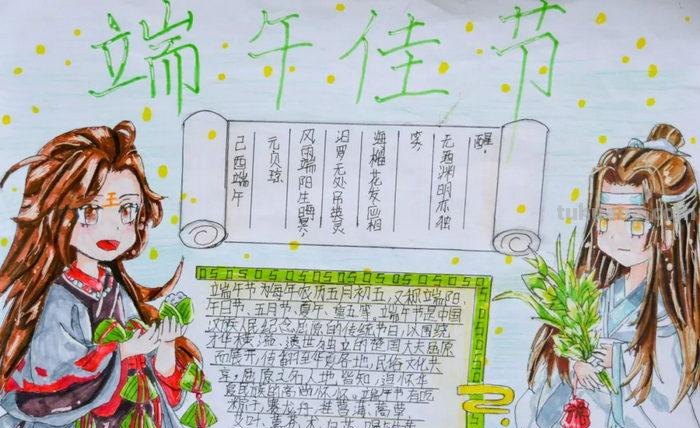 端午佳节
己酉端午
元贝琼
风雨端阳生晦冥,
汨罗无处吊英灵
海榴花发应相
笑,
无酒渊明亦独
醒。
王
端午节为每年农历五月初五,又称端阳、
午日节、五月节、夏午、重五等,端午节是中国
汉族人民纪念屈原的传统节日,以围绕
才华横溢、遗世独立的楚国大夫屈原
而展开,传播至华夏各地,民俗文化共
享,屈原之名人地皆知,追怀华
夏民族的高洁情怀。端午节有吃
粽子,赛龙舟,挂菖蒲、蒿草